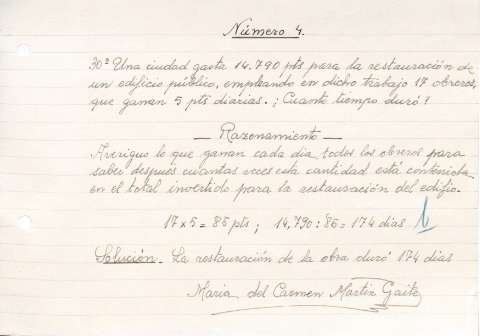 Número 4.
30º Una ciudad gasta 14.790 pts para la restauración de
un edificio público, empleando en dicho trabajo 17 obreros,
que ganan 5 pts diarias. ¿Cuanto tiempo duró?
— Razonamiento —
Averiguo lo que ganan cada dia todos los obreros para
saber después cuántas veces esta cantidad está contenida
en el total invertido para la restauración del edificio.
17 x 5 = 85 pts ; 14.790 : 85 = 174 dias
Solución. La restauración de la obra duró 174 dias
Maria del Carmen Martin Gaite